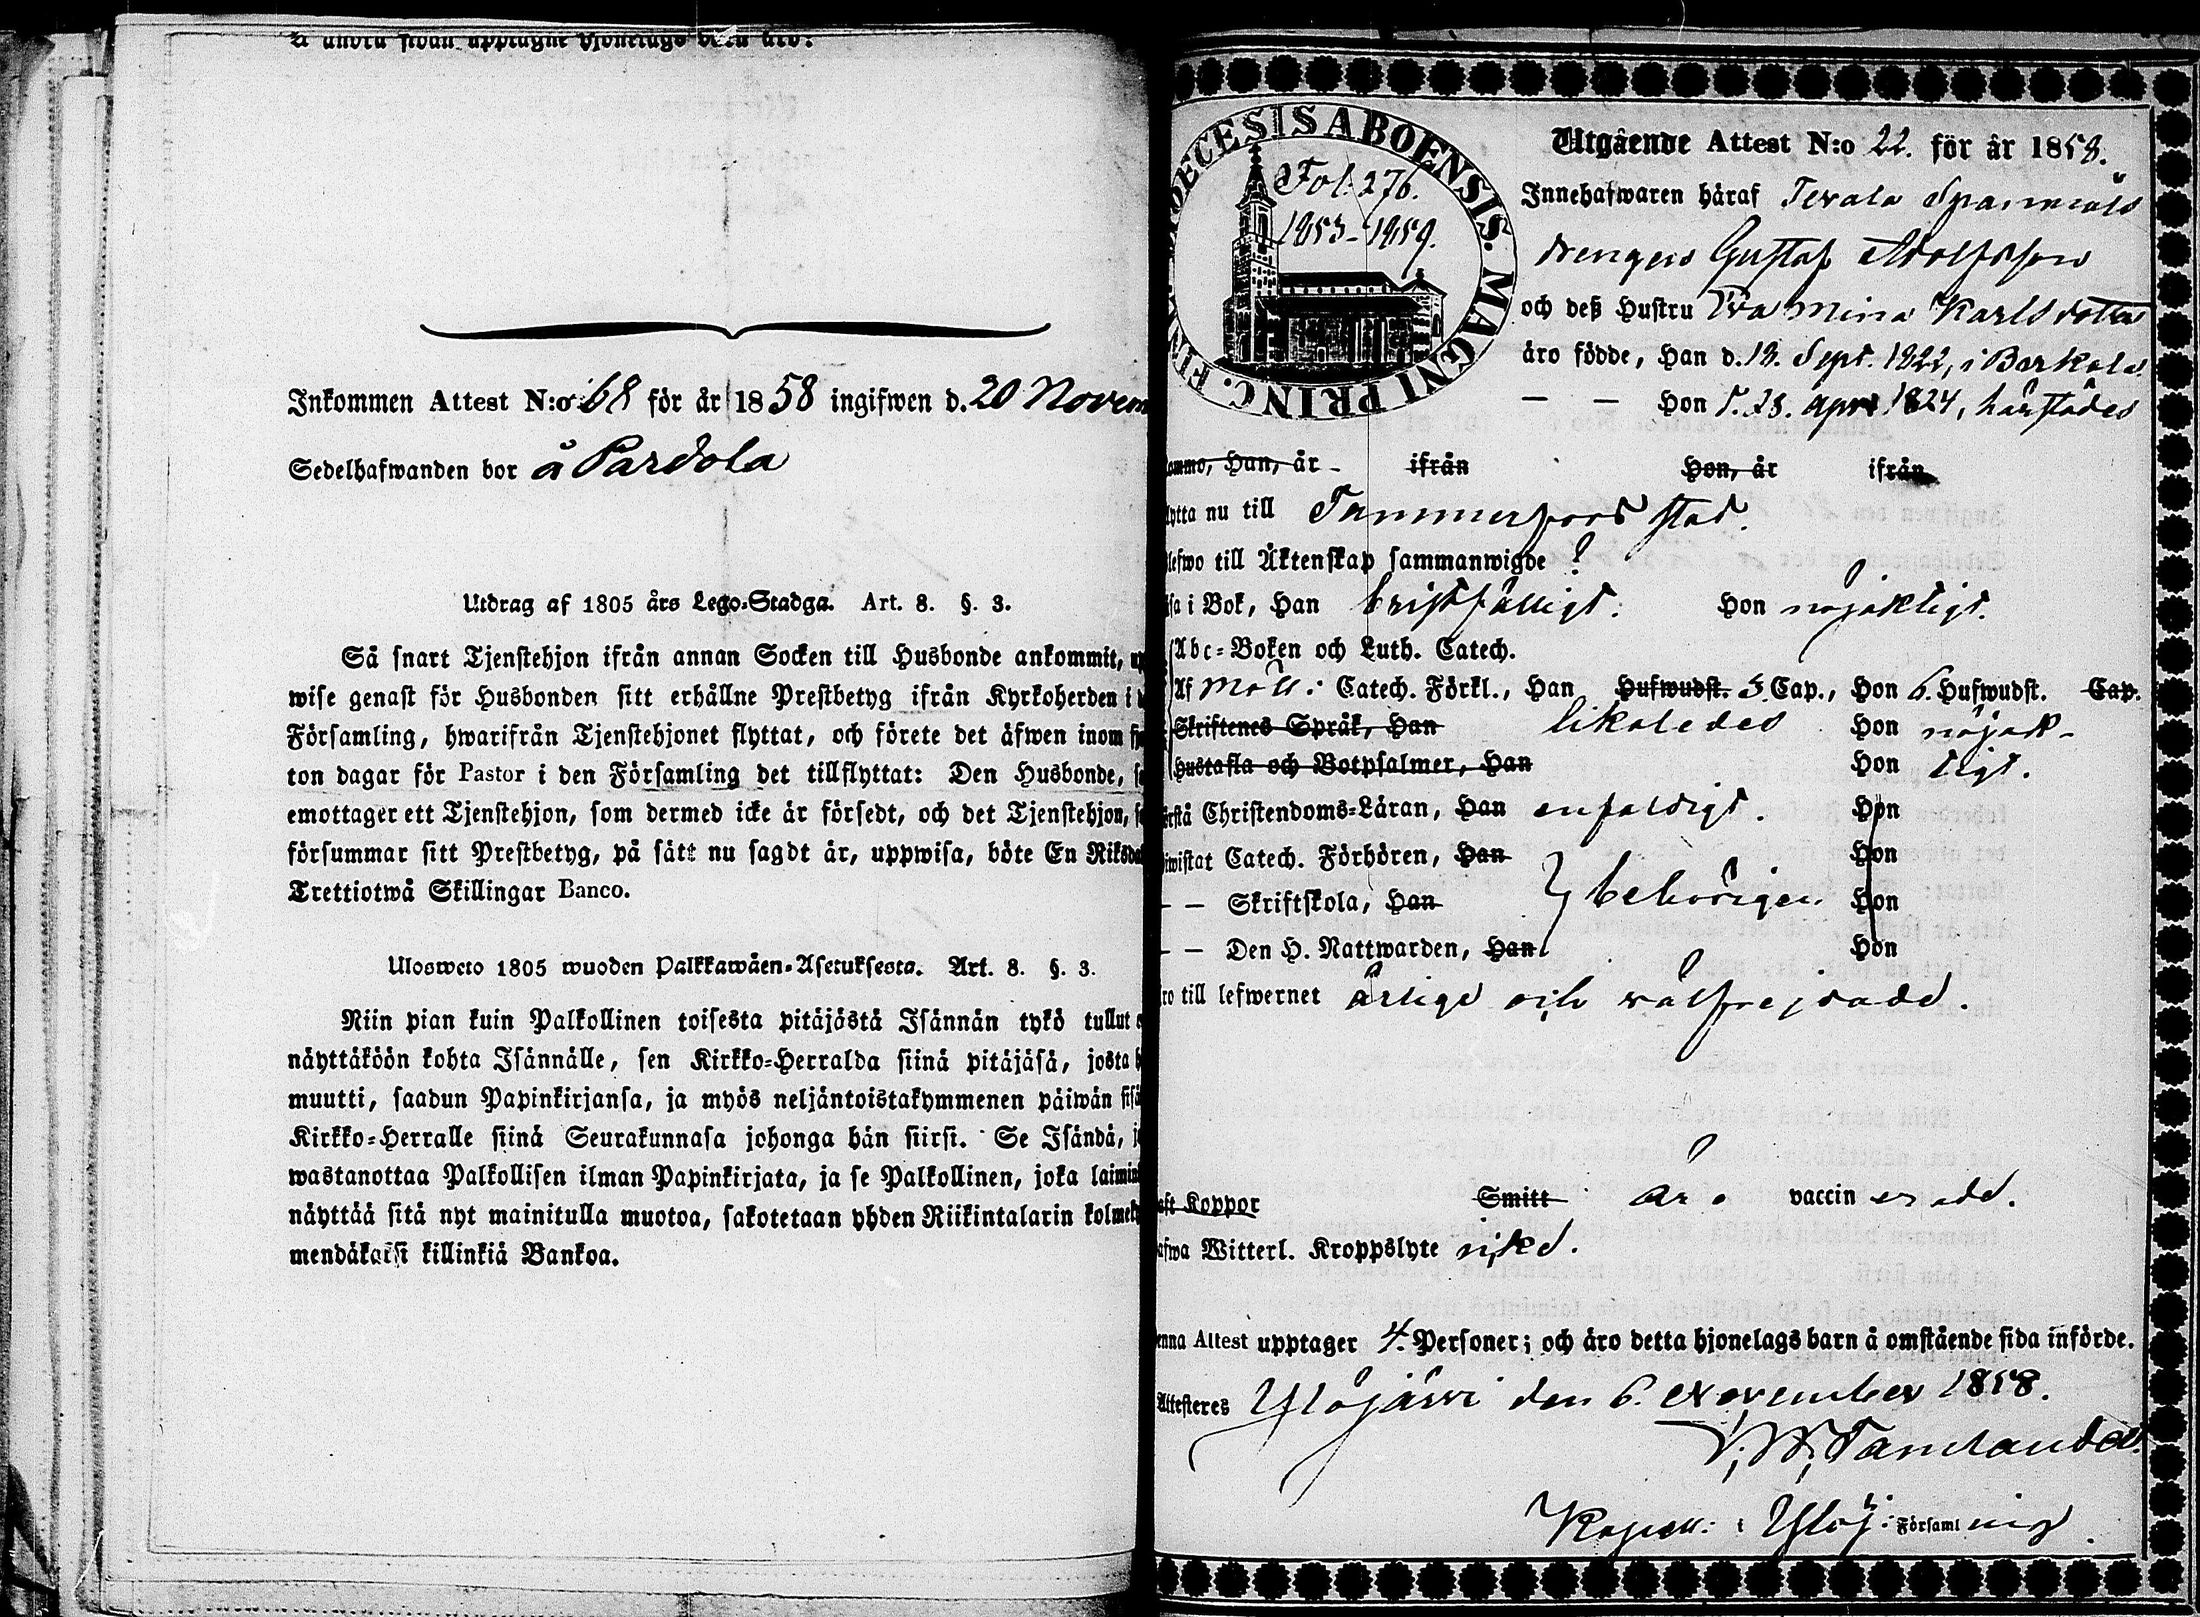 å andra sidan upptagne hjonelags barn äro:
Inkommen Attest N:o 68 för år 1858 ingifwen d. 20 Novem
Sedelhafwanden bor å Pardola
Utdrag af 1805 års Lego-Stadga. Art. 8. §. 3.
Så snart Tjenstehjon ifrån annan Socken till Husbonde ankommit,
wise genast för Husbonden sitt erhållne Prestbetyg ifrån Kyrkoherden i
Församling, hwarifrån Tjenstehjonet flyttat, och förete det äfwen inom
ton dagar för Pastor i den Församling det tillflyttat: Den Husbonde,
emottager ett Tjenstehjon, som dermed icke är försedt, och det Tjenstehjon,
försummar sitt Prestbetyg, på sätt nu sagdt är, uppwisa, böte En Riksda
Trettiotwå Skillingar Banco.
Ulosweto 1805 wuoden Palkkawäen-Asetuksesta. Art. 8. §. 3.
Niin pian kuin Palkollinen toisesta pitäjästä Isännän tykö tullut
näyttäköön kohta Isännälle, sen Kirkko-Herralda siinä pitäjäsä, josta
muutti, saadun Papinkirjansa, ja myös neljäntoistakymmenen päiwän sisä
Kirkko-Herralle siinä Seurakunnasa johonga hän siirsi. Se Isändä,
wastanottaa Palkollisen ilman Papinkirjata, ja se Palkollinen, joka laimin
näyttää sitä nyt mainitulla muotoa, sakotetaan yhden Riikintalarin kolme
mendäkaksi killinkiä Bankoa.
DIOECESIS ABOENSIS. MAGNI PRINC. FIN
Fol. 276.
1853-1859.
Utgående Attest N:o 22. för år 1858.
Innehafwaren häraf Terala Spanmåls
drengen Gustaf Adolfsson
och deß Hustru Eva Mina Karlsdotter
äro födde, Han d. 13. Sept. 1822, i Barkala
— — Hon d. 23. April 1824, härstädes
ommo, Han, år - ifrån Hon, år ifrån
lytta nu till Tammerfors stad.
lefwo till Äktenskap sammanwigde ?
sa i Bok, Han bristfälligt: Hon nöjaktigt.
Abc-Boken och Luth. Catech.
Af Möll: Catech. Förkl., Han Hufwudst. 3. Cap., Hon 6. Hufwudst. Cap.
Skriftenes Språk, Han likaledes Hon nöjak-
Hustafla och Botpsalmer, Han Hon tigt.
rstå Christendoms-Läran, Han enfaldigt. Hon
iwistat Catech. Förhören, Han Hon
— — Skriftskola, Han behörigen Hon
— — Den H. Nattwarden, Han Hon
ro till lefwernet ärlige och wälfrejdade.
aft Koppor Smitt äro vaccinerade.
afwa Witterl. Kroppslyte icke.
enna Attest upptager 4. Personer; och äro detta hjonelags barn å omstående sida införde.
Attesteres Ylöjärvi den 6. November 1858.
Kapell: i Ylöj: Församling